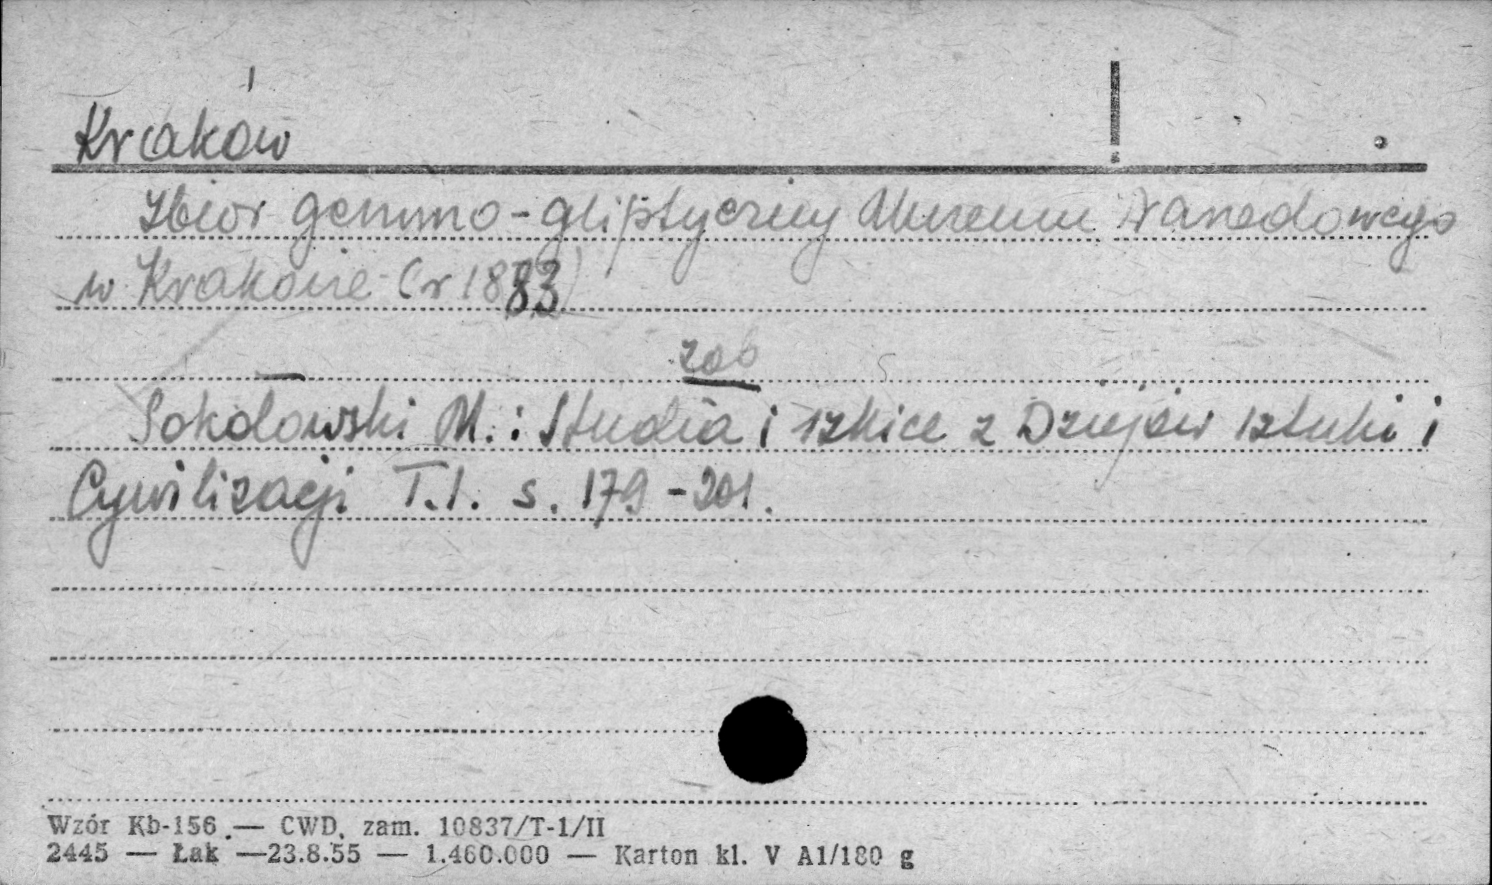 Kraków
Zbiór gemmo-gliptyczny Muzeum Narodowego
w Krakowie (r 1883)
zob
Sokołowski M. : Studia i szkice z Dziejów sztuki i
Cywilizacji T.I. s. 179-201.
Wzór Kb-156 — CWD, zam. 10837/T-1/II
2445 — Łak —23.8.55 — 1.460.000 — Karton kl. V A1/180 g